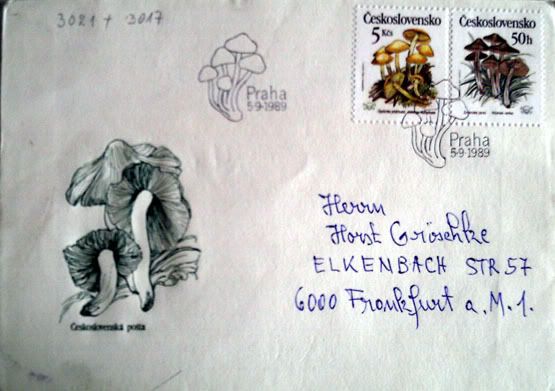 3021 + 3017
Československo
5 Kčs
Československo
50h
Praha
5.9.1989
Praha
5.9.1989
Herrn
Horst Gröschke
ELKENBACH STR 57
6000 Frankfurt a. M. 1.
Československá pošta